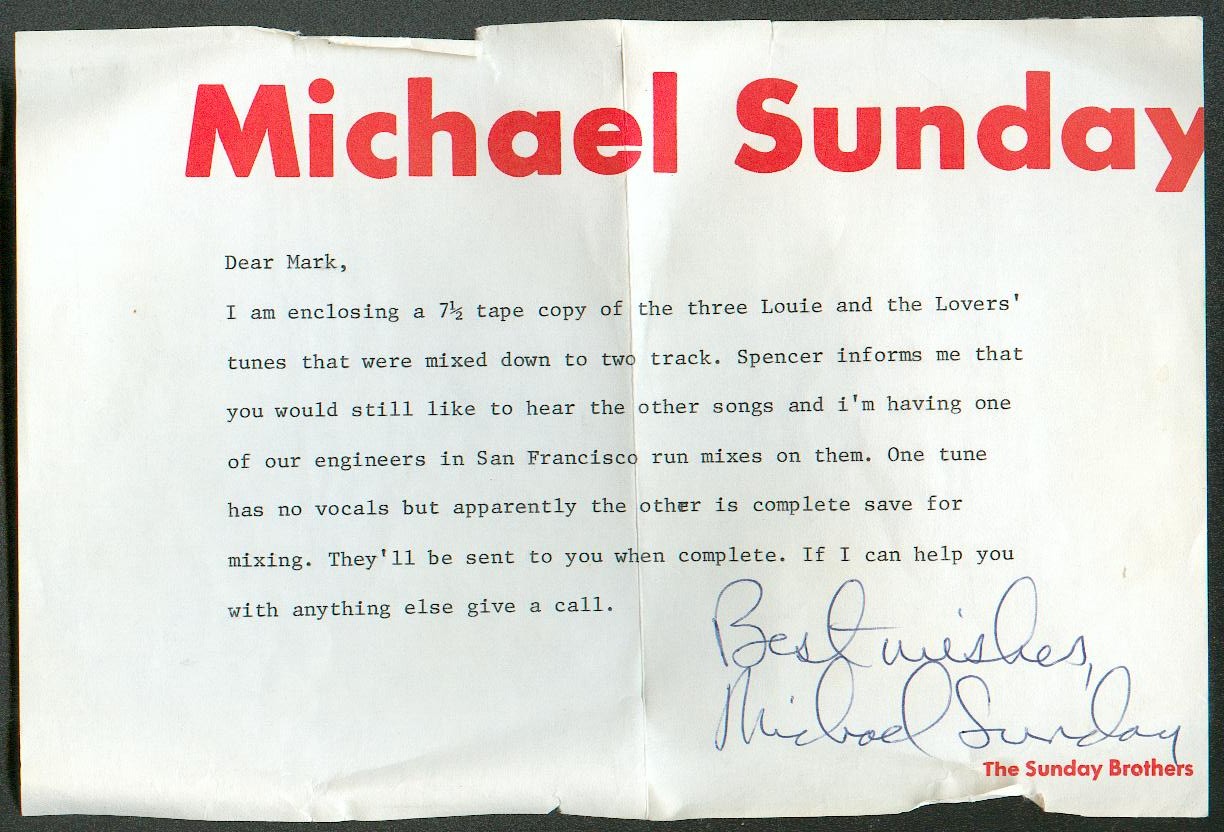 Michael Sunday
Dear Mark,
I am enclosing a 7½ tape copy of the three Louie and the Lovers'
tunes that were mixed down to two track. Spencer informs me that
you would still like to hear the other songs and i'm having one
of our engineers in San Francisco run mixes on them. One tune
has no vocals but apparently the other is complete save for
mixing. They'll be sent to you when complete. If I can help you
with anything else give a call.
Best wishes,
Michael Sunday
The Sunday Brothers